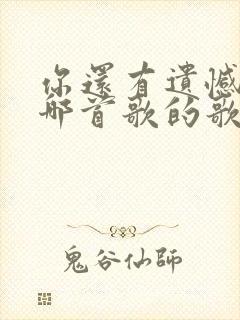 你還有遺憾
那首歌的歌
鬼谷仙師